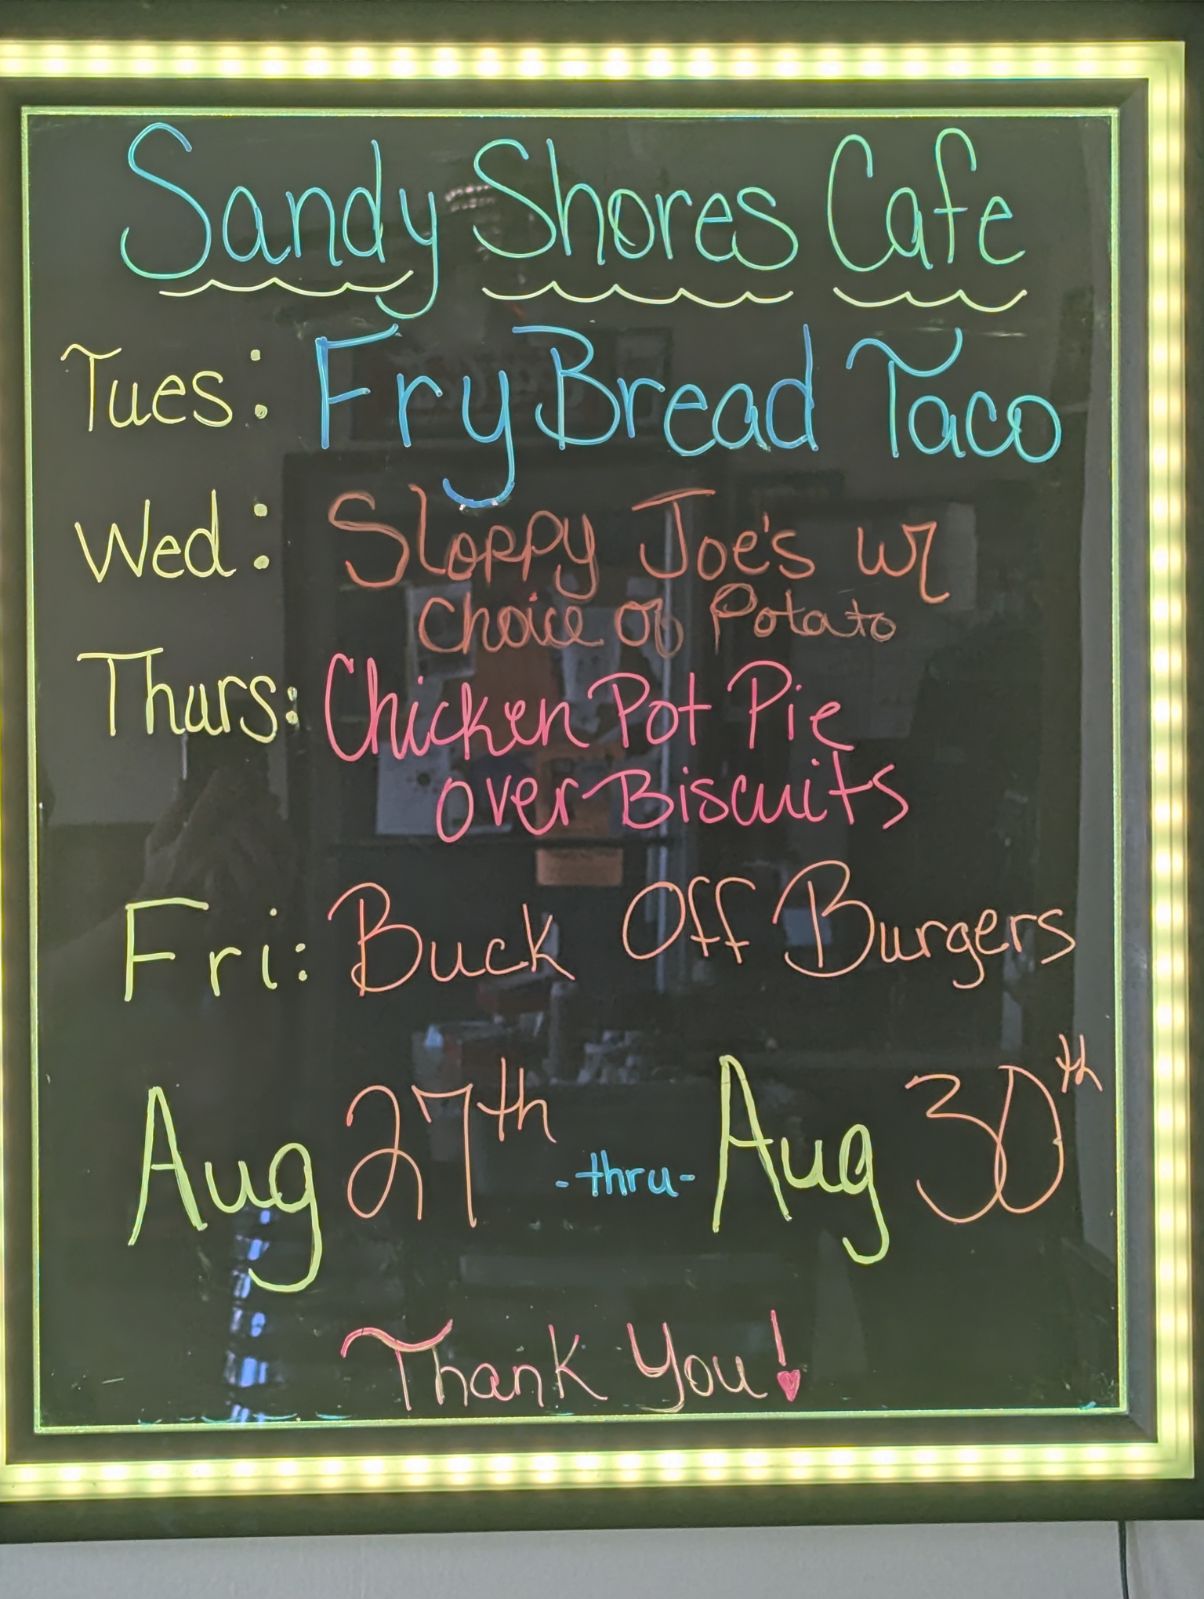 Sandy Shores Cafe
Tues: Fry Bread Taco
Wed: Sloppy Joe's w/
Choice of Potato
Thurs: Chicken Pot Pie
over Biscuits
Fri: Buck Off Burgers
Aug 27th -thru- Aug 30th
Thank You!